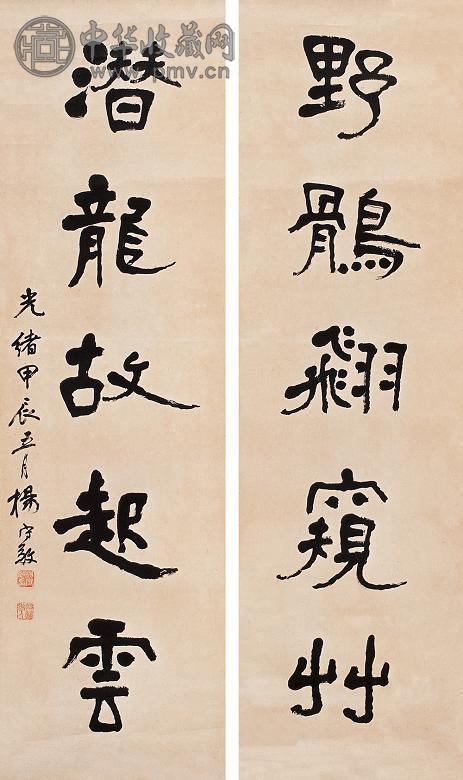 中华收藏网
www.pmv.cn
野鶻翻窺艸
潜龍故起雲
光緒甲辰五月楊守敬